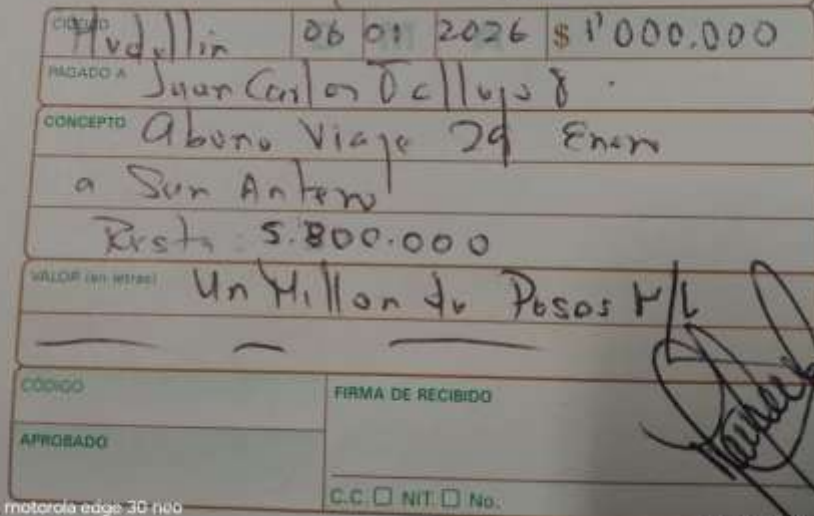 CIUDAD Medellin 06 01 2026 $ 1'000.000
PAGADO A Juan Carlos
CONCEPTO abono Viaje 29 Enero
a San Antero
Resta: 5.800.000
VALOR (en letras) Un Millon de Pesos M/L
CÓDIGO
FIRMA DE RECIBIDO
APROBADO
C.C. NIT. No.
motorola edge 30 neo